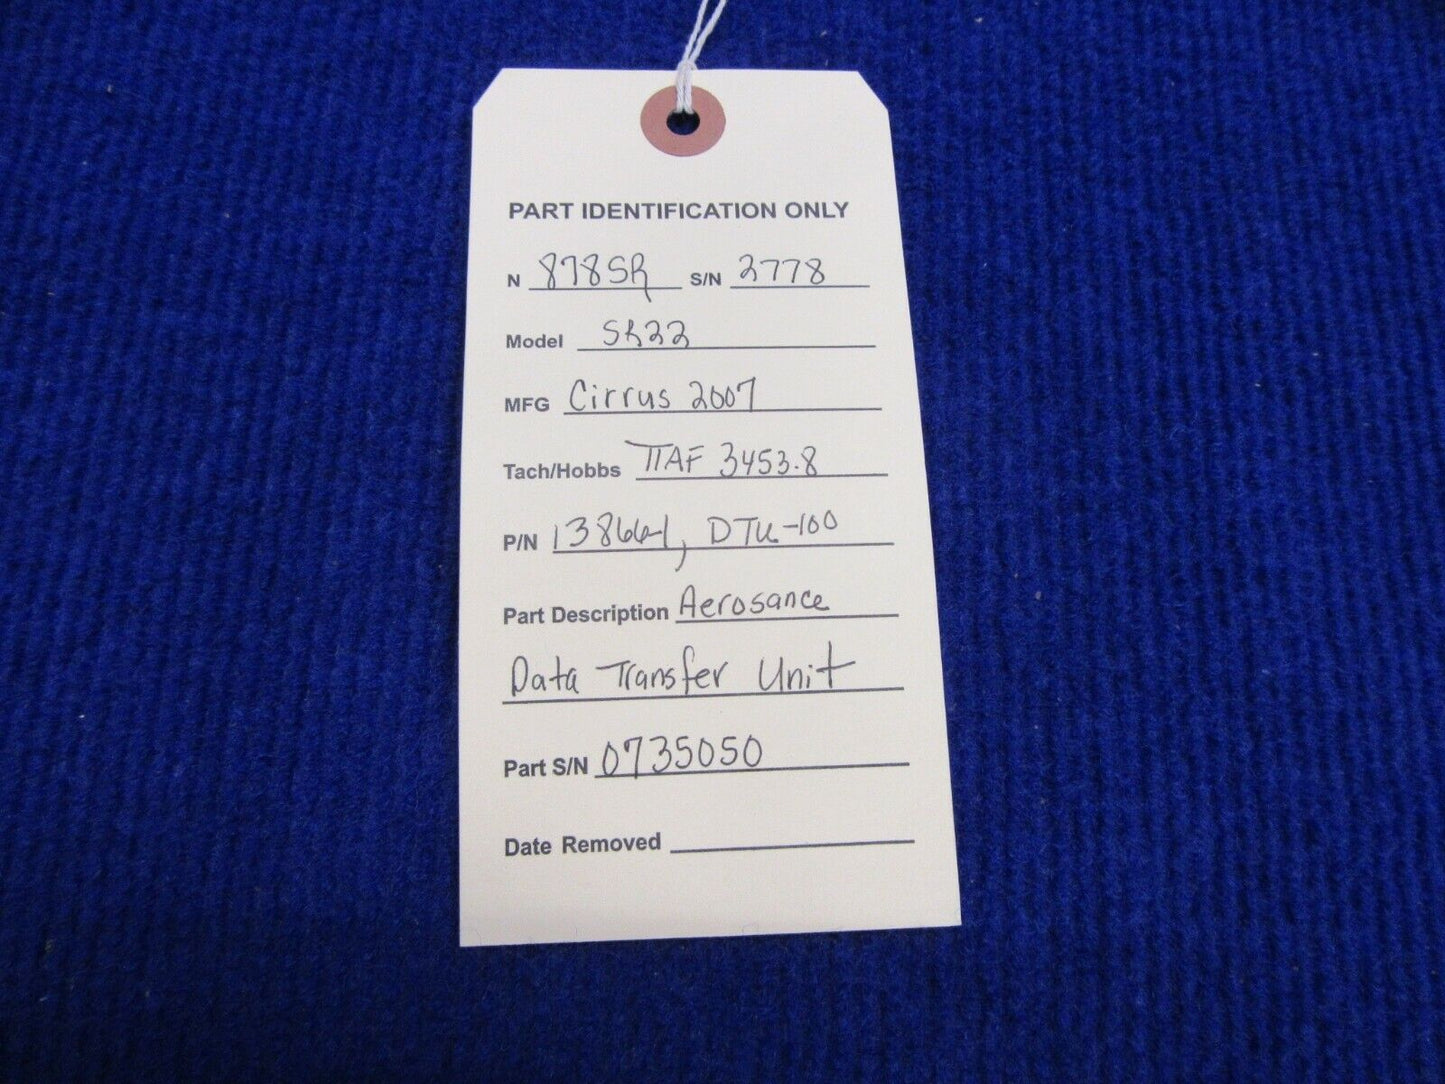 PART IDENTIFICATION ONLY
N 878SR S/N 2778
Model SR22
MFG Cirrus 2007
Tach/Hobbs TTAF 3453.8
P/N 13866-1, DTU-100
Part Description Aerosance
Data Transfer Unit
Part S/N 0735050
Date Removed